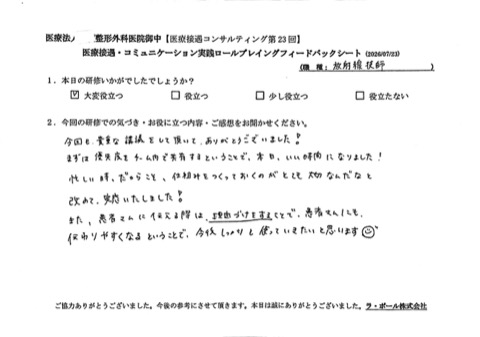 医療法人 整形外科医院御中【医療接遇コンサルティング第23回】
医療接遇・コミュニケーション実践ロールプレイングフィードバックシート(2026/07/23)
(職 種: 放射線技師 )
1.本日の研修いかがでしたでしょうか?
☑ 大変役立つ □ 役立つ □ 少し役立つ □ 役立たない
2.今回の研修での気づき・お役に立つ内容・ご感想をお聞かせください。
今回も、貴重な講義をして頂いて、ありがとうございました!
まずは優先度をチーム内で共有するということで、本日、いい時間になりました!
忙しい時、だからこそ、仕組みをつくっておくのがとても大切なんだなと
改めて、実感いたしました!
また、患者さんに伝える際は、理由づけをすることで、患者さんにも、
伝わりやすくなるということで、今後しっかりと使っていきたいと思います☺
ご協力ありがとうございました。今後の参考にさせて頂きます。本日は誠にありがとうございました。ラ・ポール株式会社